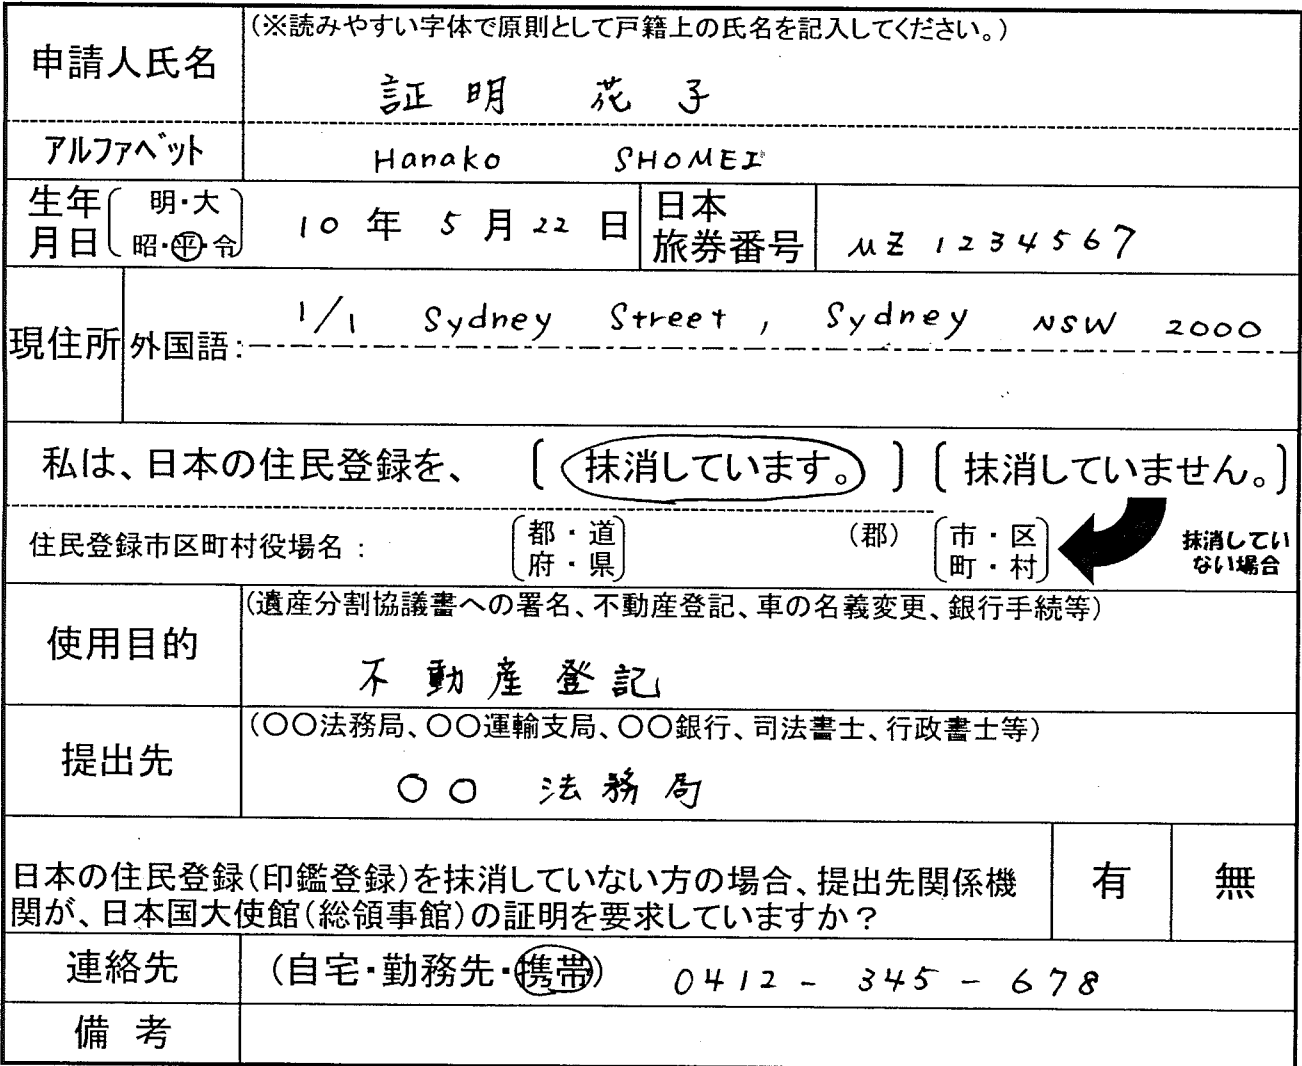 申請人氏名
(※読みやすい字体で原則として戸籍上の氏名を記入してください。)
証明 花子
アルファベット
Hanako SHOMEI
生年月日(明・大 昭・平・令)
10年 5月 22日
日本旅券番号
MZ 1234567
現住所
外国語:
1/1 Sydney Street, Sydney NSW 2000
私は、日本の住民登録を、 [抹消しています。] [抹消していません。]
住民登録市区町村役場名: [都・道 府・県] (郡) [市・区 町・村]
抹消していない場合
使用目的
(遺産分割協議書への署名、不動産登記、車の名義変更、銀行手続等)
不動産登記
提出先
(〇〇法務局、〇〇運輸支局、〇〇銀行、司法書士、行政書士等)
〇〇 法務局
日本の住民登録(印鑑登録)を抹消していない方の場合、提出先関係機
関が、日本国大使館(総領事館)の証明を要求していますか?
有
無
連絡先
(自宅・勤務先・携帯) 0412 - 345 - 678
備考